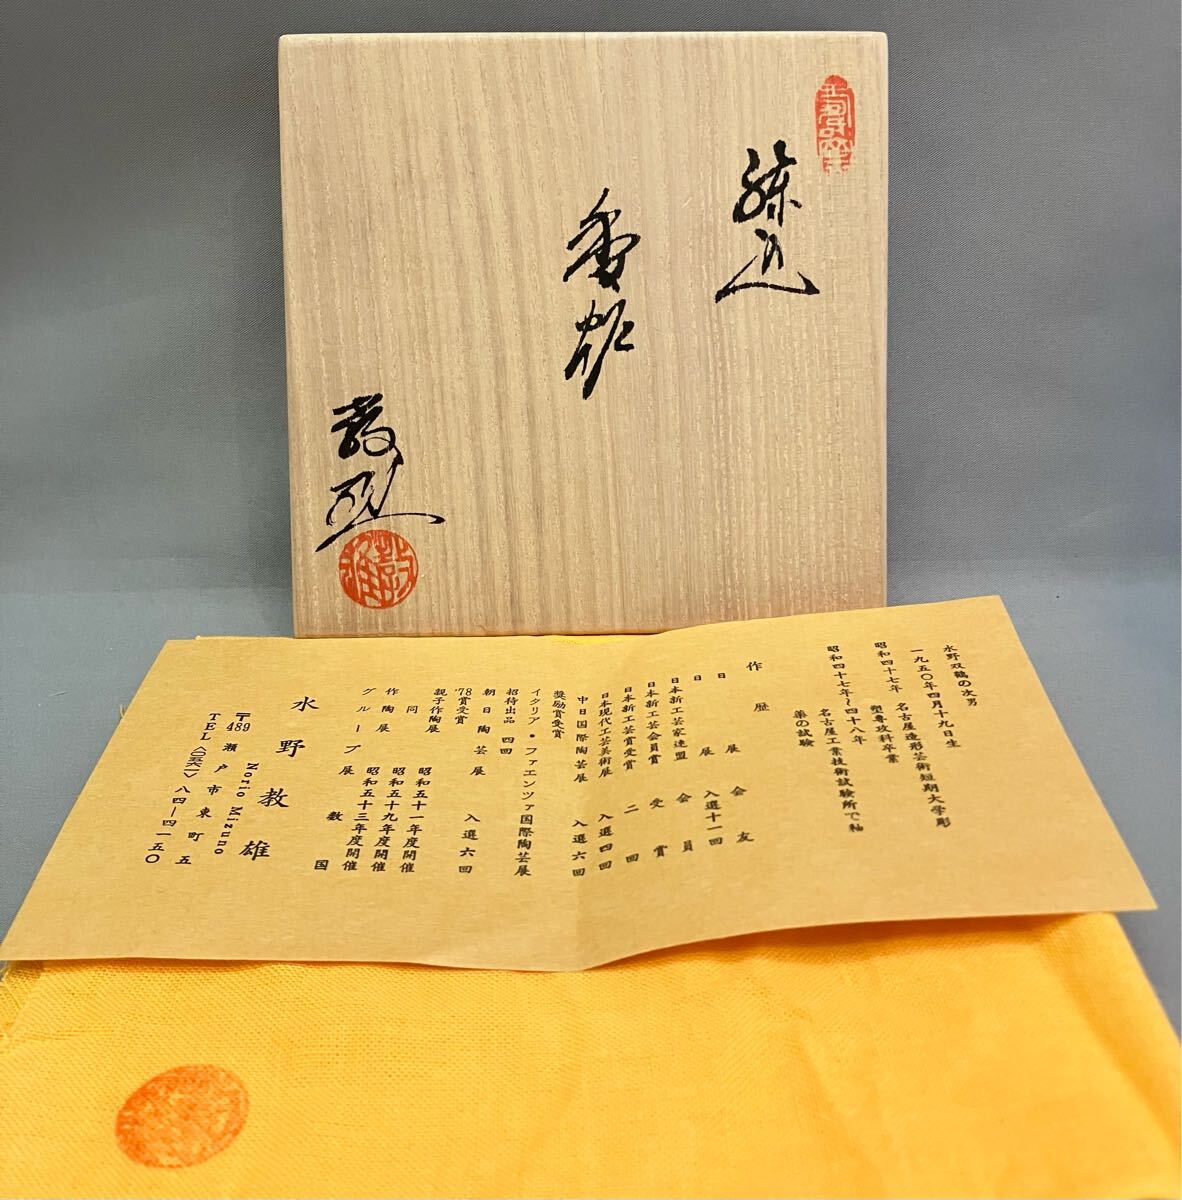 練込
香炉
教雄
水野双鶴の次男
一九五〇年四月十九日生
昭和四十七年 名古屋造形芸術短期大学彫
塑専攻科卒業
昭和四十七年～四十八年
名古屋工業技術試験所で釉
薬の試験
作歴
日展会友
日展 入選十一回
日本新工芸家連盟会員
日本新工芸会員賞受賞
日本新工芸賞受賞 二回
日本現代工芸美術展 入選四回
中日国際陶芸展 入選六回
奨励賞受賞
イタリア・ファエンツァ国際陶芸展
招待出品 四回
朝日陶芸展 入選六回
'78賞受賞
親子作陶展 昭和五十一年度開催
同 昭和五十九年度開催
作陶展 昭和五十三年度開催
グループ展 数回
水野教雄
Norio Mizuno
〒489 瀬戸市東町五
TEL〈〇五六一〉八四―四一五〇